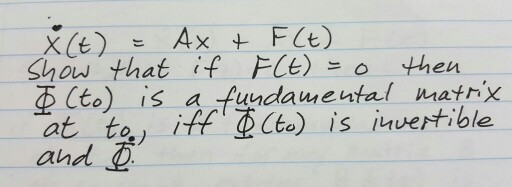 ẋ(t) = Ax + F(t)
Show that if F(t) = 0 then
Φ(to) is a fundamental matrix
at to, iff Φ(to) is invertible
and Φ̇.